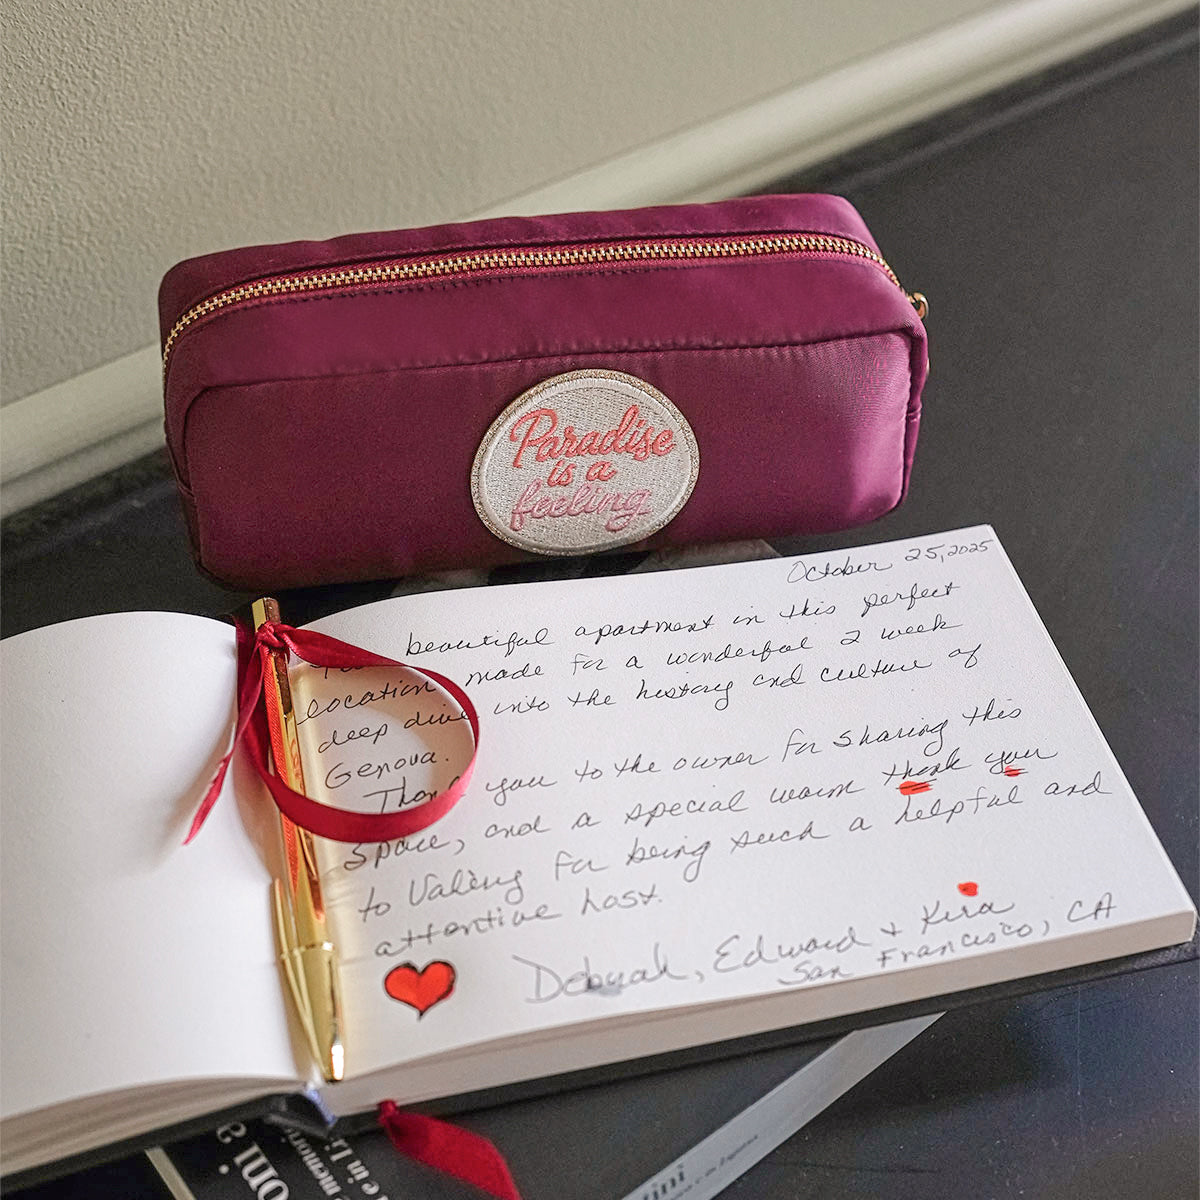 Paradise
is a
feeling
October 25, 2025
beautiful apartment in this perfect
location made for a wonderful 2 week
deep dive into the history and culture of
Genova.
Thank you to the owner for sharing this
space, and a special warm thank you
to Valery for being such a helpful and
attentive host.
Deborah, Edward + Kira
San Francisco, CA
oni a
memori
e in Li
tini